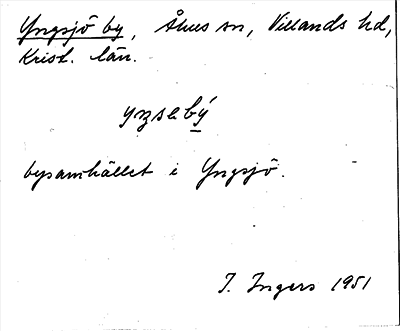 Yngsjö by, Åhus sn, Villands hd,
Krist. län.
bysamhället i Yngsjö.
I. Ingers 1951